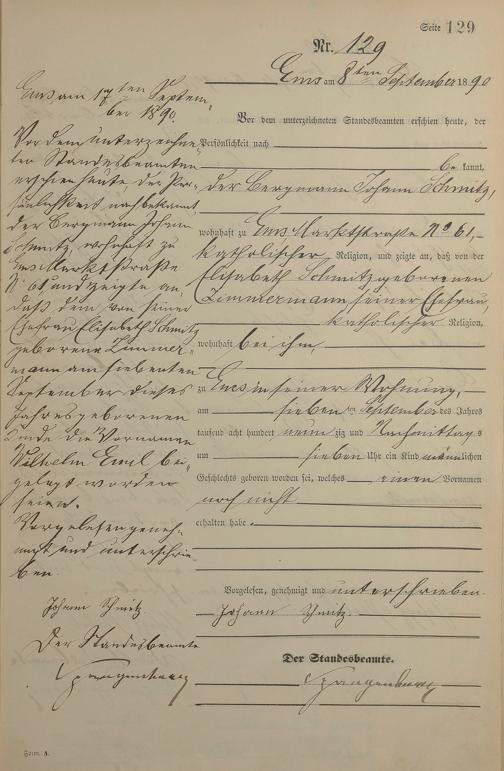 Seite 129
Nr. 129
Ems am 8ten September 1890
Vor dem unterzeichneten Standesbeamten erschien heute, der
Persönlichkeit nach
be kannt,
der Bergmann Johann Schmitz,
wohnhaft zu Ems Marktstraße No 61,
katholischer Religion, und zeigte an, daß von der
Elisabeth Schmitz geborenen
Zimmermann seiner Ehefrau,
katholischer Religion,
wohnhaft bei ihm,
zu Ems in seiner Wohnung,
am sieben ten September des Jahres
tausend acht hundert neun zig und Nachmittags
um sieben Uhr ein Kind männlichen
Geschlechts geboren worden sei, welches einen Vornamen
noch nicht
erhalten habe.
Vorgelesen, genehmigt und unterschrieben.
Johann Schmitz.
Der Standesbeamte.
Spangenberg
Ems am 17ten Septem-
ber 1890.
Vor dem unterzeichne-
ten Standesbeamten
erschien heute der Per-
sönlichkeit nach bekannt,
der Bergmann Johann
Schmitz, wohnhaft zu
Ems Marktstraße
No 61 und zeigte an,
daß dem von seiner
Ehefrau Elisabeth Schmitz
geborene Zimmer-
mann am siebenten
September dieses
Jahres geborenen
Kinde die Vornamen
Wilhelm Emil bei-
gelegt worden
seien.
Vorgelesen geneh-
migt und unterschrie-
ben
Johann Schmitz.
Der Standesbeamte
Spangenberg
Form. A.